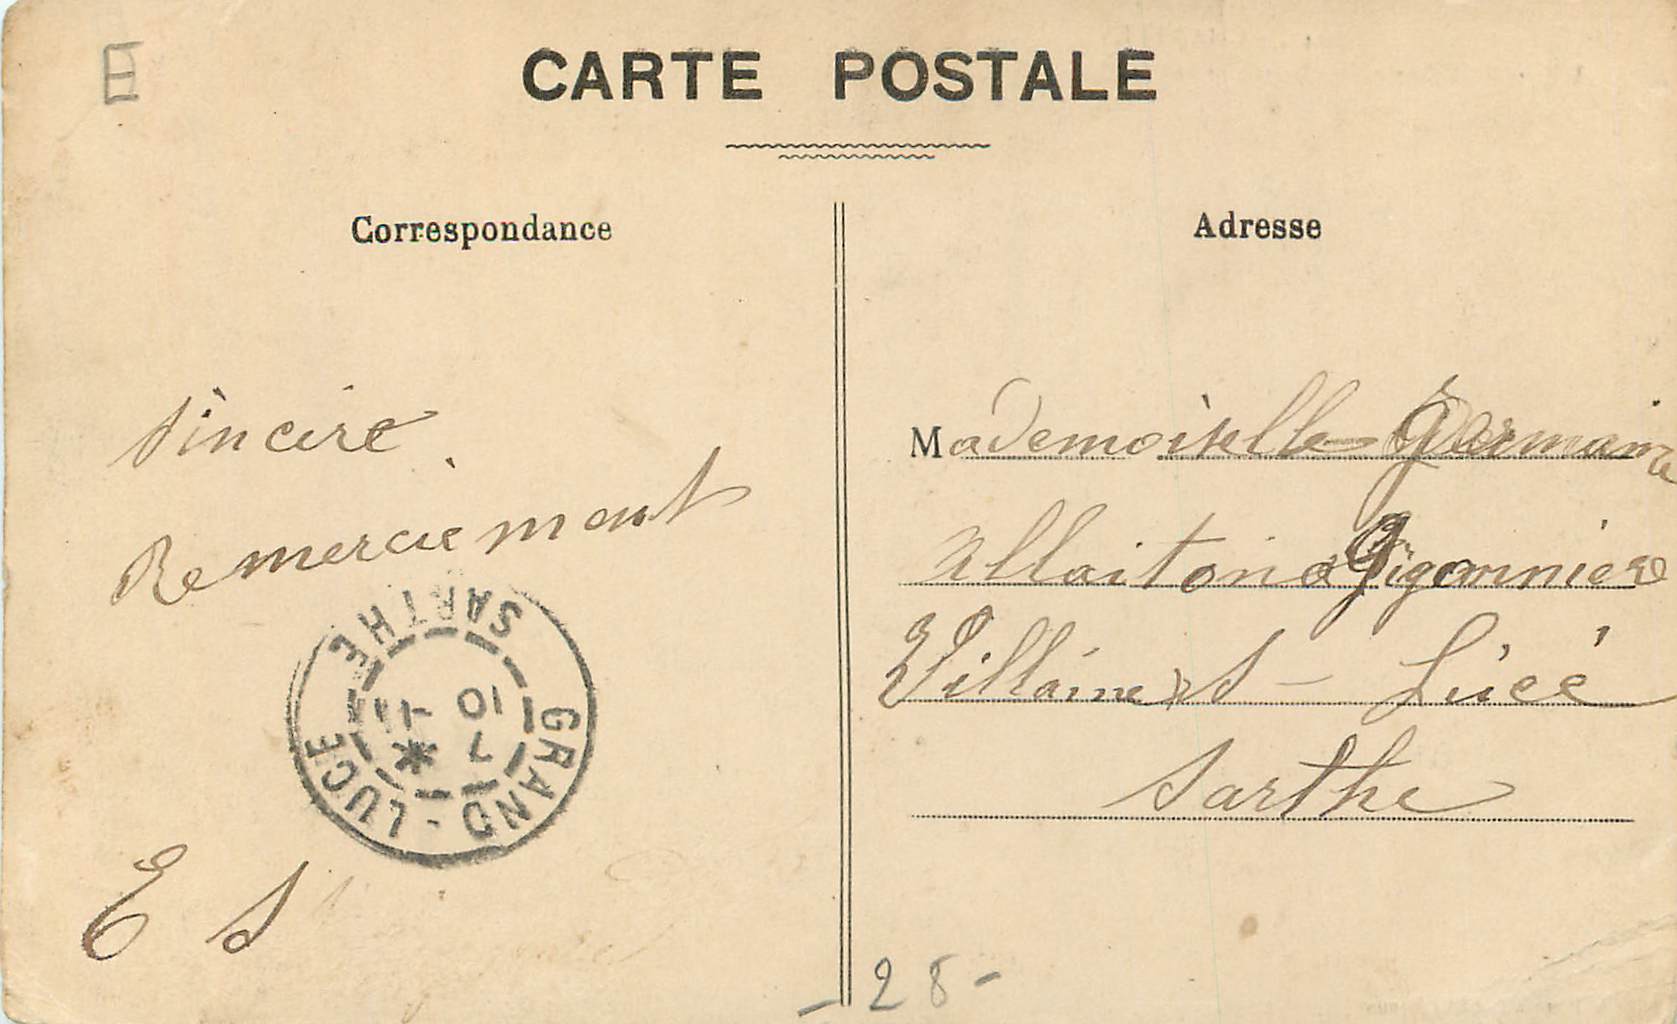 CARTE POSTALE
Correspondance
sincère
Remerciement
GRAND-LUCE SARTHE
10 -11
7
E S
Adresse
Mademoiselle Germaine
Villaines s Lucé
Sarthe
- 28 -